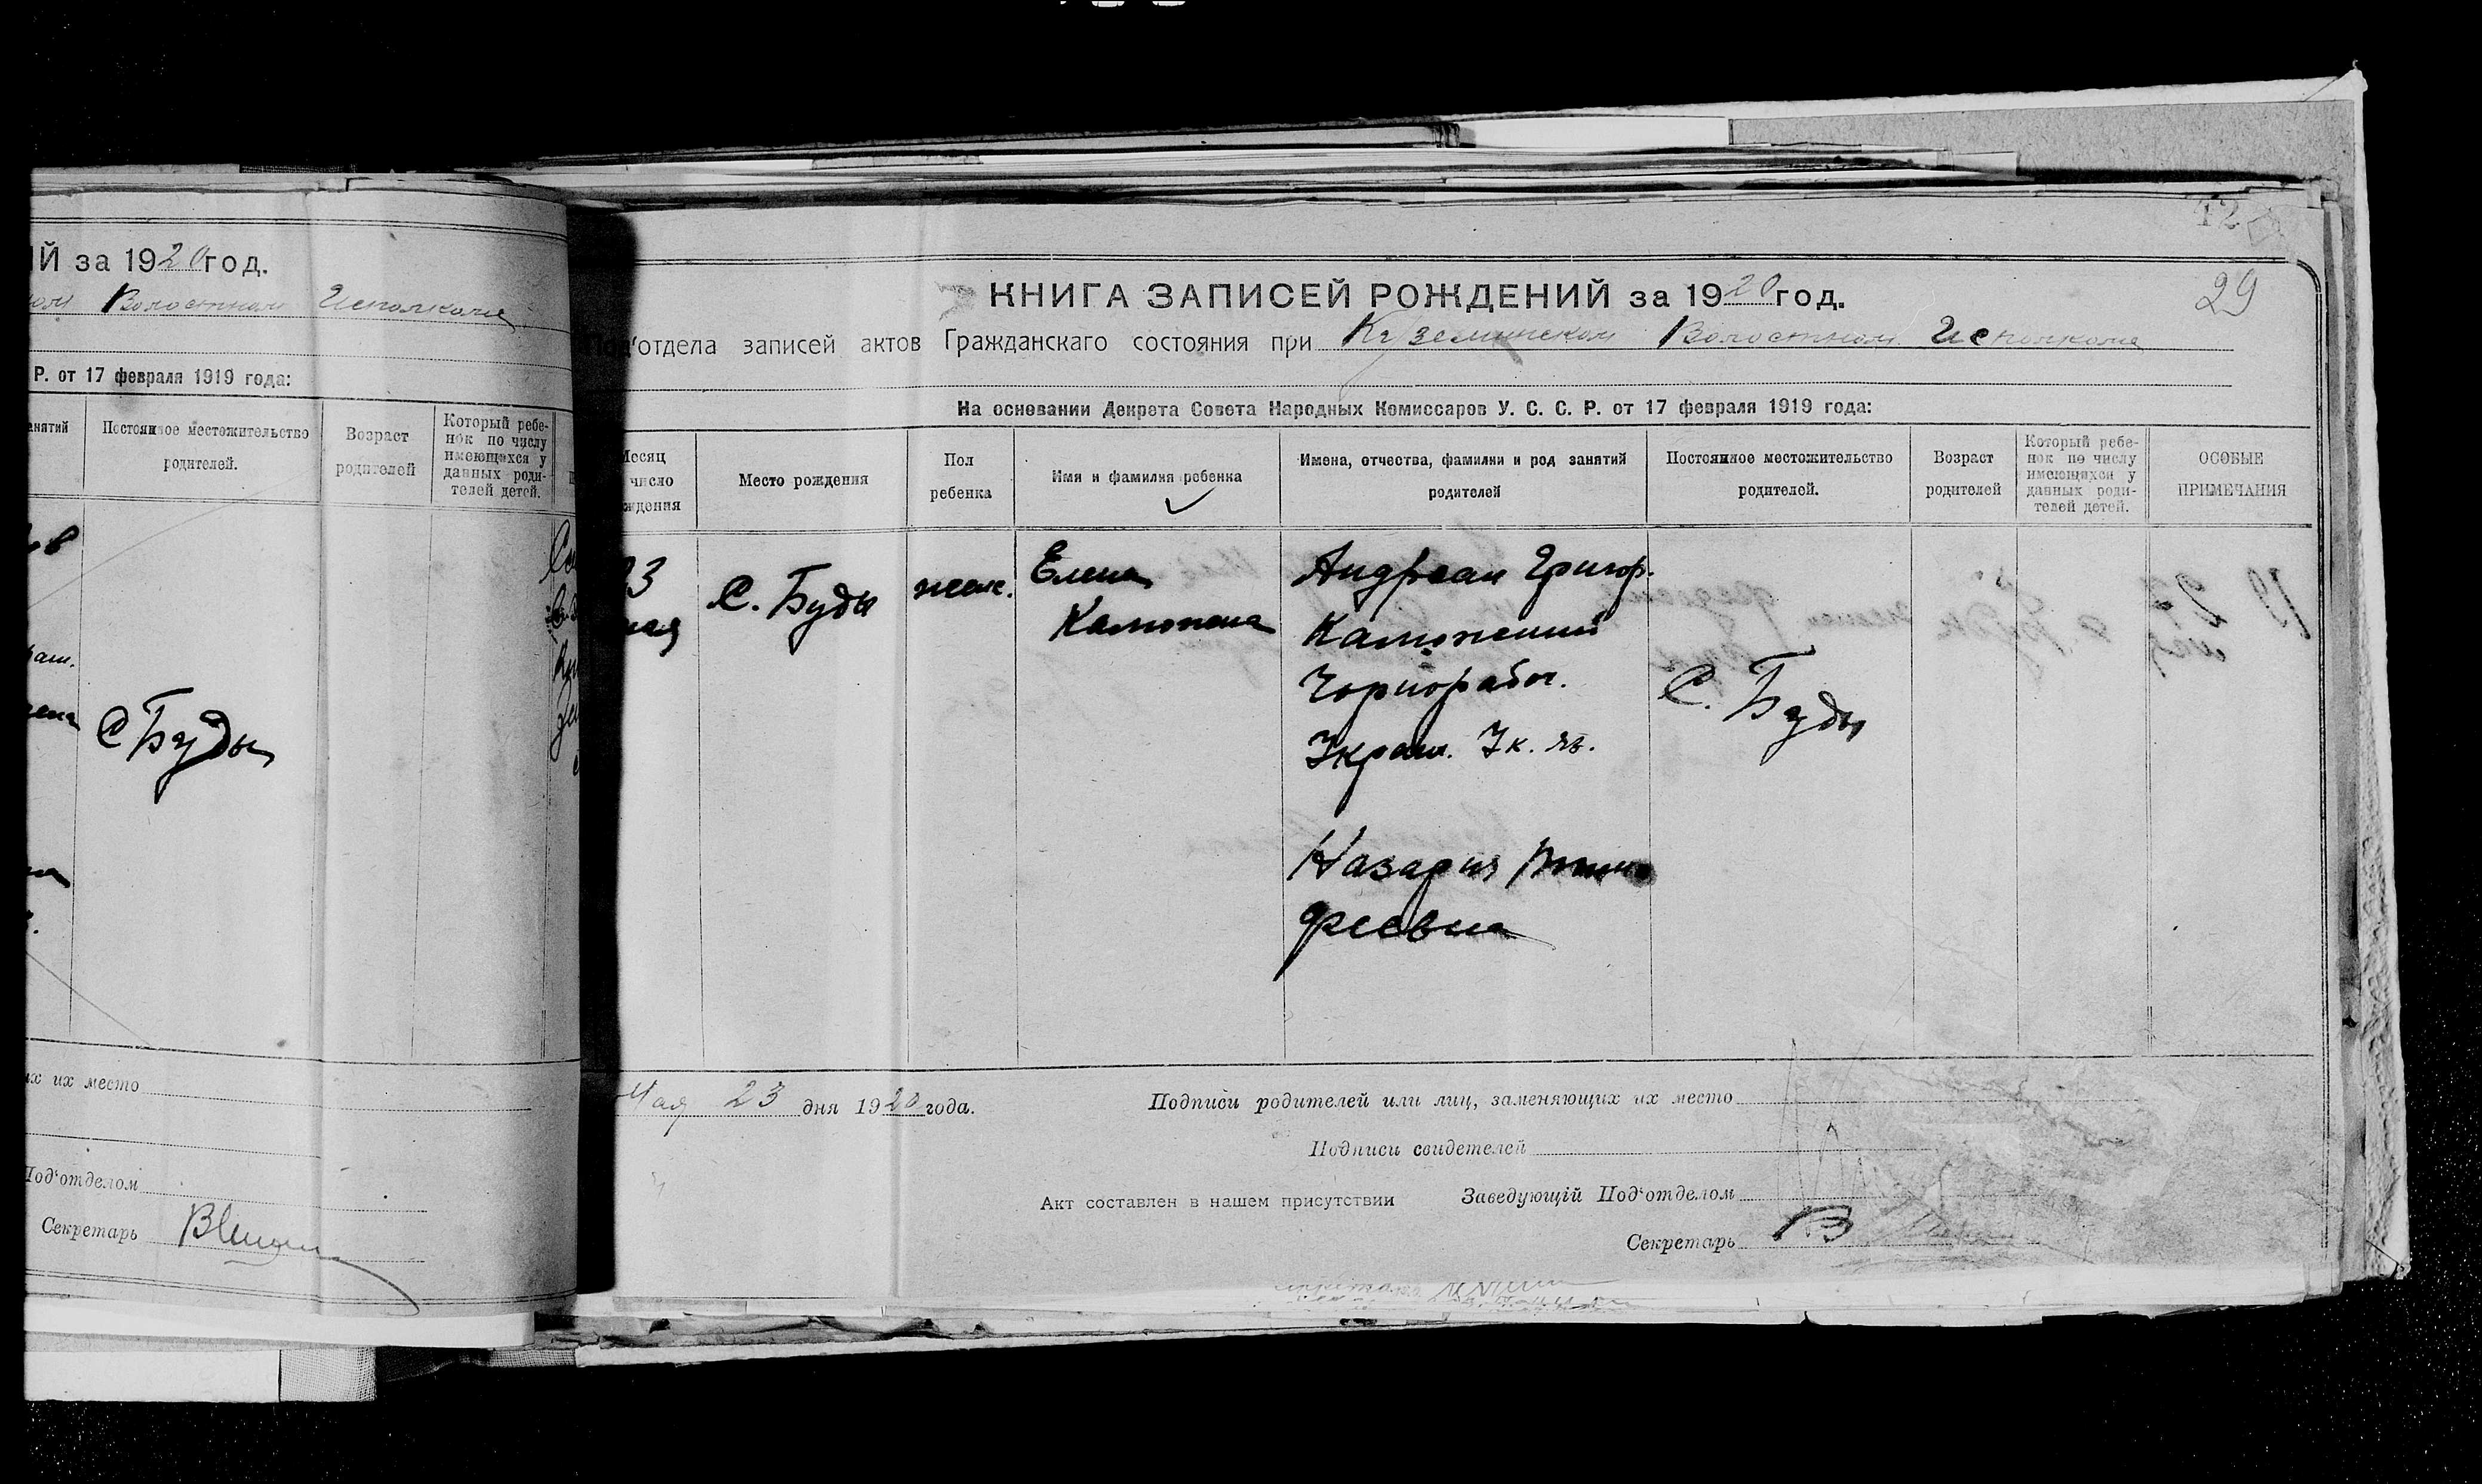 ІЙ за 1920 год.
Волостном Исполкоме
Р. от 17 февраля 1919 года:
анятий
Постоянное местожительство
родителей.
Возраст
родителей
Который ребе-
нок по числу
имеющихся у
данных роди-
телей детей.
С Буды
их их место
Под‘отделом
Секретарь
42
29
КНИГА ЗАПИСЕЙ РОЖДЕНИЙ за 1920 год.
Под‘отдела записей актов Гражданскаго состояния при Куземинском Волостном Исполкоме
На основании Декрета Совета Народных Комиссаров У. С. С. Р. от 17 февраля 1919 года:
Месяц
число
ждения
Место рождения
Пол
ребенка
Имя и фамилия ребенка
Имена, отчества, фамилии и род занятий
родителей
Постоянное местожительство
родителей.
Возраст
родителей
Который ребе-
нок по числу
имеющихся у
данных роди-
телей детей.
ОСОБЫЕ
ПРИМЕЧАНИЯ
23
мая
С. Буды
женс.
Елена
Калюжна
Андреан Григор.
Калюжений
Чорнорабоч.
Украин. Ук. яз.
Назария
феевна
С. Буды
Мая 23 дня 1920 года.
Подписи родителей или лиц, заменяющих их место
Подписи свидетелей
Акт составлен в нашем присутствии
Заведующій Под‘отделом
Секретарь